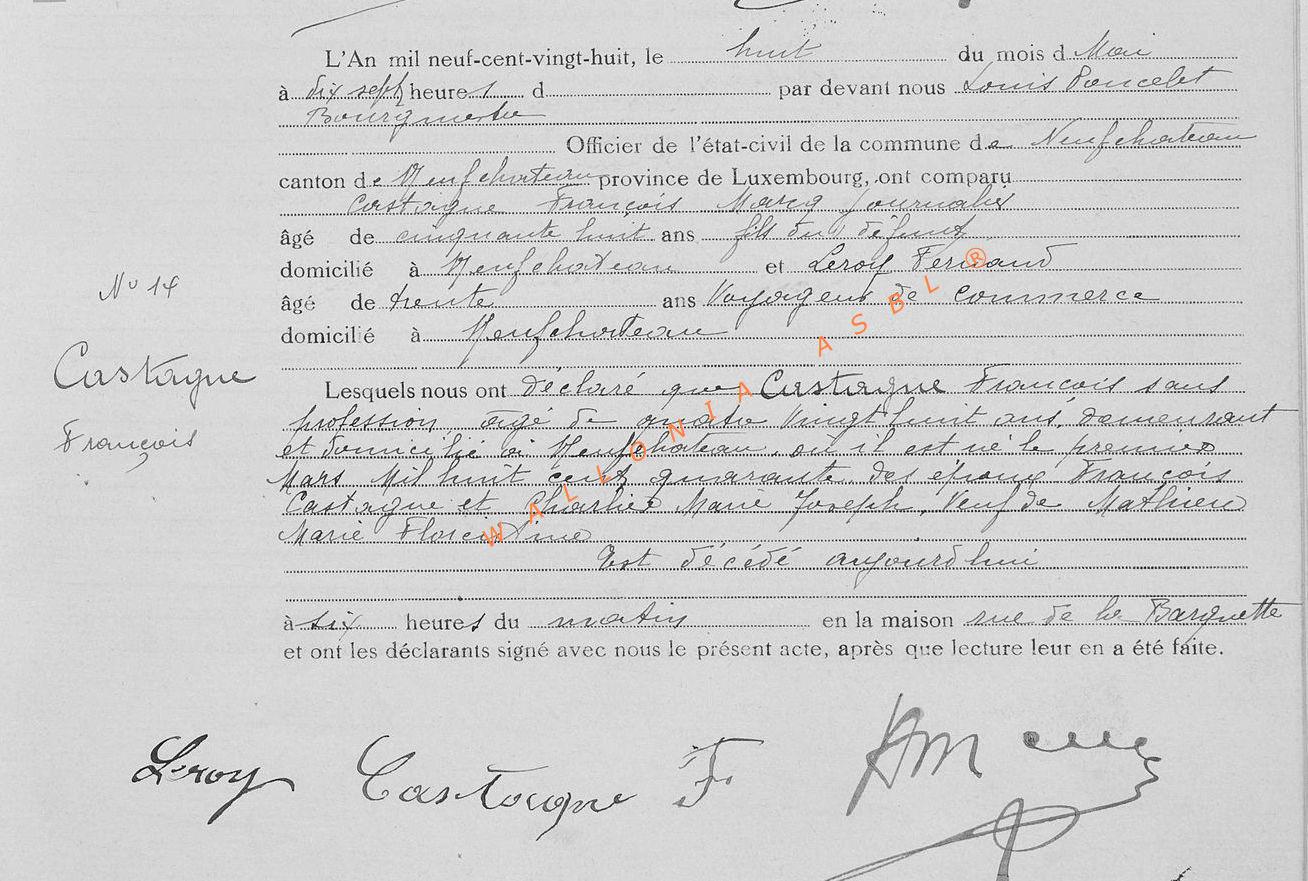 L'An mil neuf-cent-vingt-huit, le huit du mois d Mai
à dix sept heures d par devant nous Louis Poncelet
Bourgmestre
Officier de l'état-civil de la commune de Neufchateau
canton de Neufchateau province de Luxembourg, ont comparu
Castagne François Marcq journalier
âgé de cinquante huit ans fils du défunt
domicilié à Neufchateau et Leroy Fernand
N° 14
âgé de trente ans Voyageur de commerce
domicilié à Neufchateau
Castagne
François
Lesquels nous ont déclaré que Castagne François sans
profession, agé de quatre vingt huit ans, demeurant
et domicilié à Neufchateau, où il est né le premier
Mars Mil huit cent quarante des époux François
Castagne et Charlier Marie Joseph, Veuf de Mathieu
Marie Florentine
Est décédé aujourd'hui
à six heures du matin en la maison rue de la Barquette
et ont les déclarants signé avec nous le présent acte, après que lecture leur en a été faite.
Leroy Castagne F
WALLONIA ASBL ®